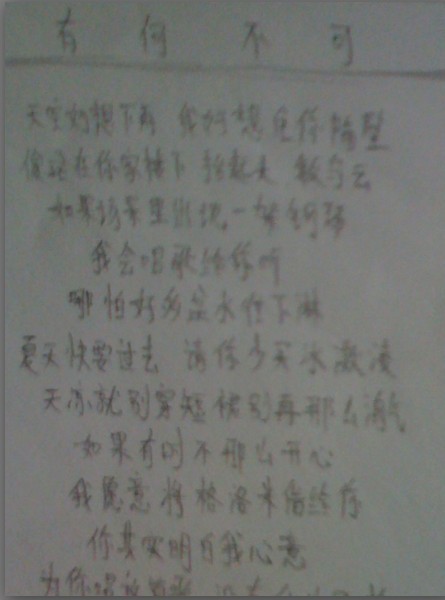 有何不可
天空好想下雨 我好想住你隔壁
傻站在你家楼下 抬起头 数乌云
如果场景里出现一架钢琴
我会唱歌给你听
哪怕好多盆水往下淋
夏天快要过去 请你少买冰激凌
天凉就别穿短裙别再那么淘气
如果有时不那么开心
我愿意将格洛米借给你
你其实明白我心意
为你唱这首歌 没有什么